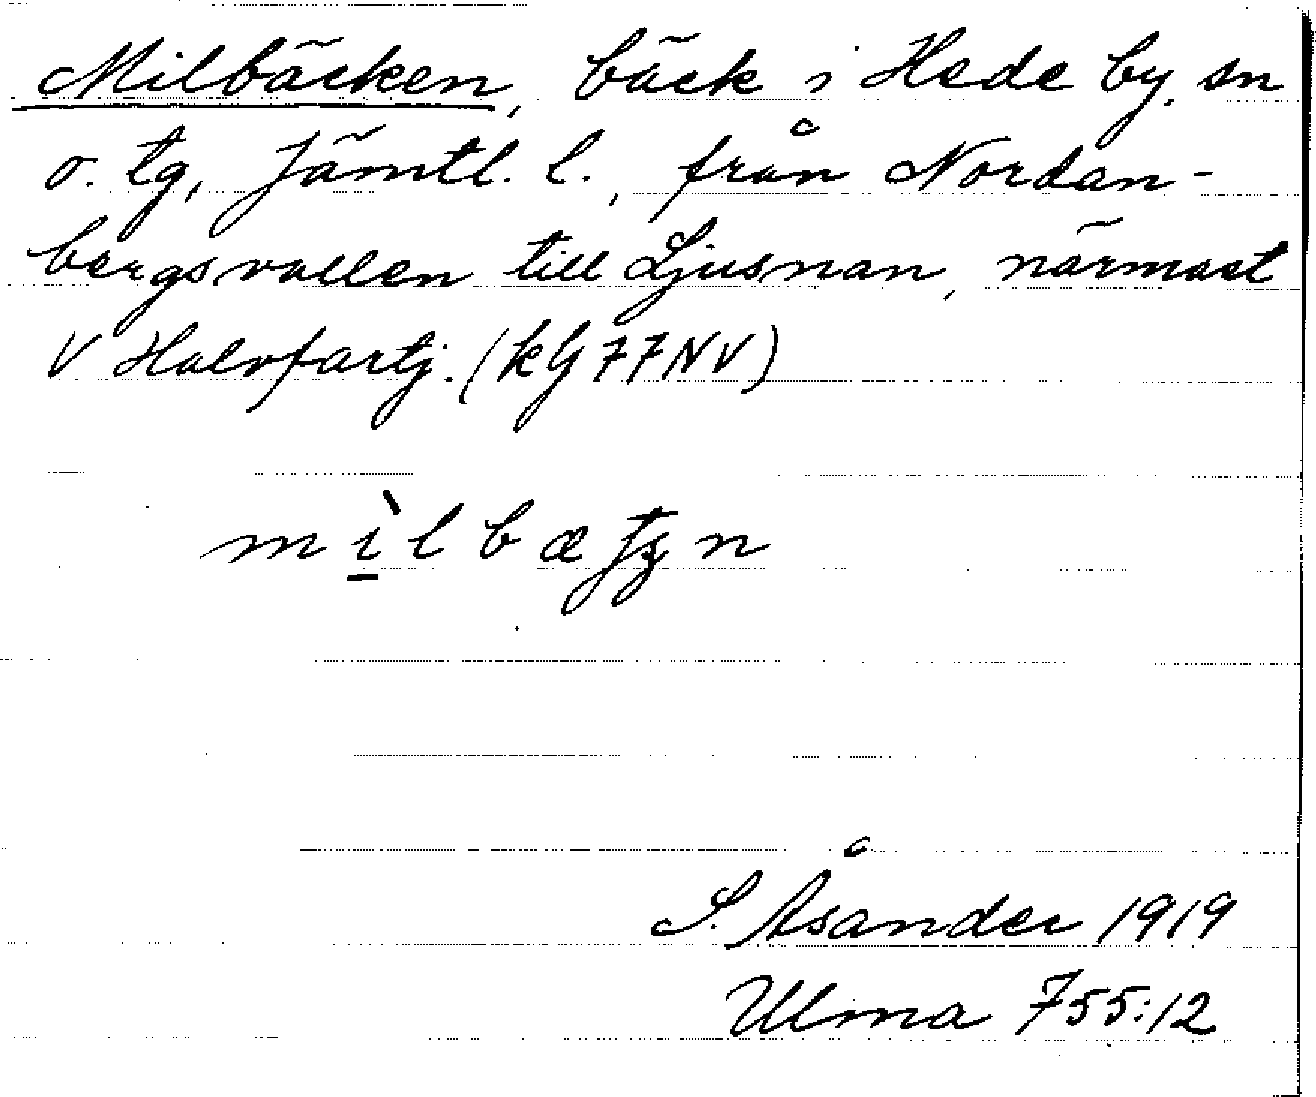 Milbäcken, bäck i Hede by, sn
o. tg, Jämtl. l., från Nordan-
bergsvallen till Ljusnan, närmast
V Halvfartj. (kG77NV)
mìlbæ
S. Åsander 1919
Ulma 755:12